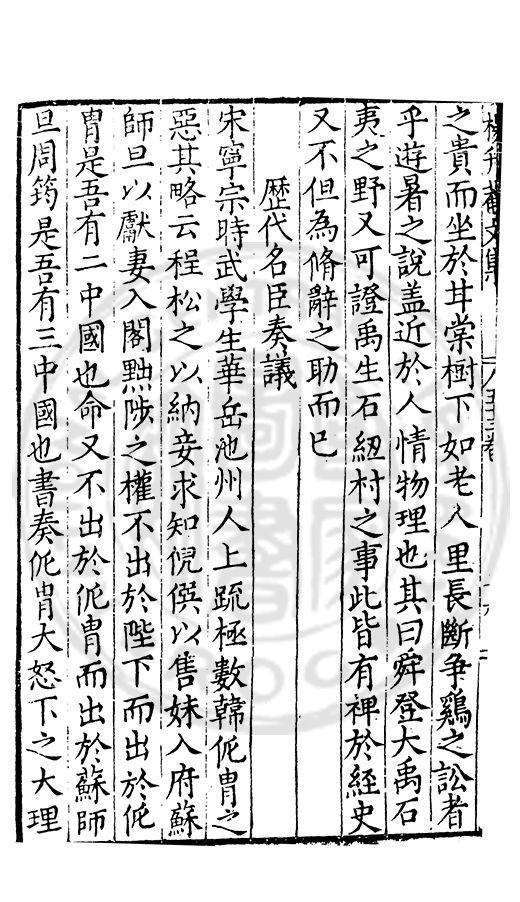 之貴而坐於甘棠樹下如老人里長斷争鷄之訟者
乎遊暑之說盖近於人情物理也其曰舜登大禹石
夷之野又可證禹生石紐村之事此皆有裨於經史
又不但為脩辭之助而已
歷代名臣奏議
宋寧宗時武學生華岳池州人上疏極數韓侂胄之
惡其略云程松之以納妾求知倪僎以售妹入府蘇
師旦以獻妻入閣黜陟之權不出於陛下而出於侂
胄是吾有二中國也命又不出於侂胄而出於蘇師
旦周筠是吾有三中國也書奏侂胄大怒下之大理